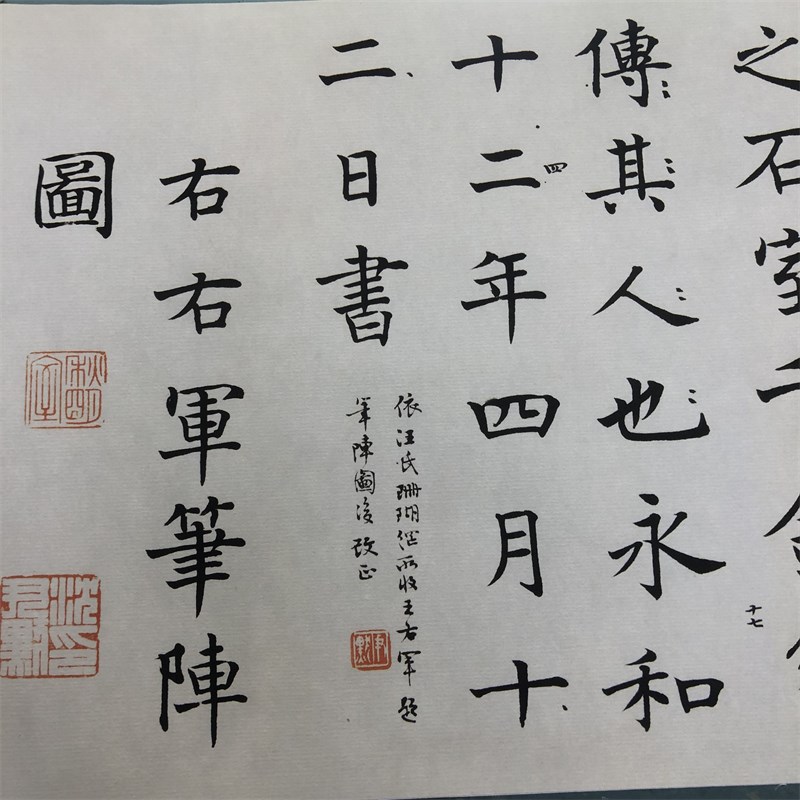 之石室千金
傳其人也永和
十二年四月十
四
二日書
十七
依汪氏珊瑚網所收王右軍題
筆陣圖後改正
右右軍筆陣
圖